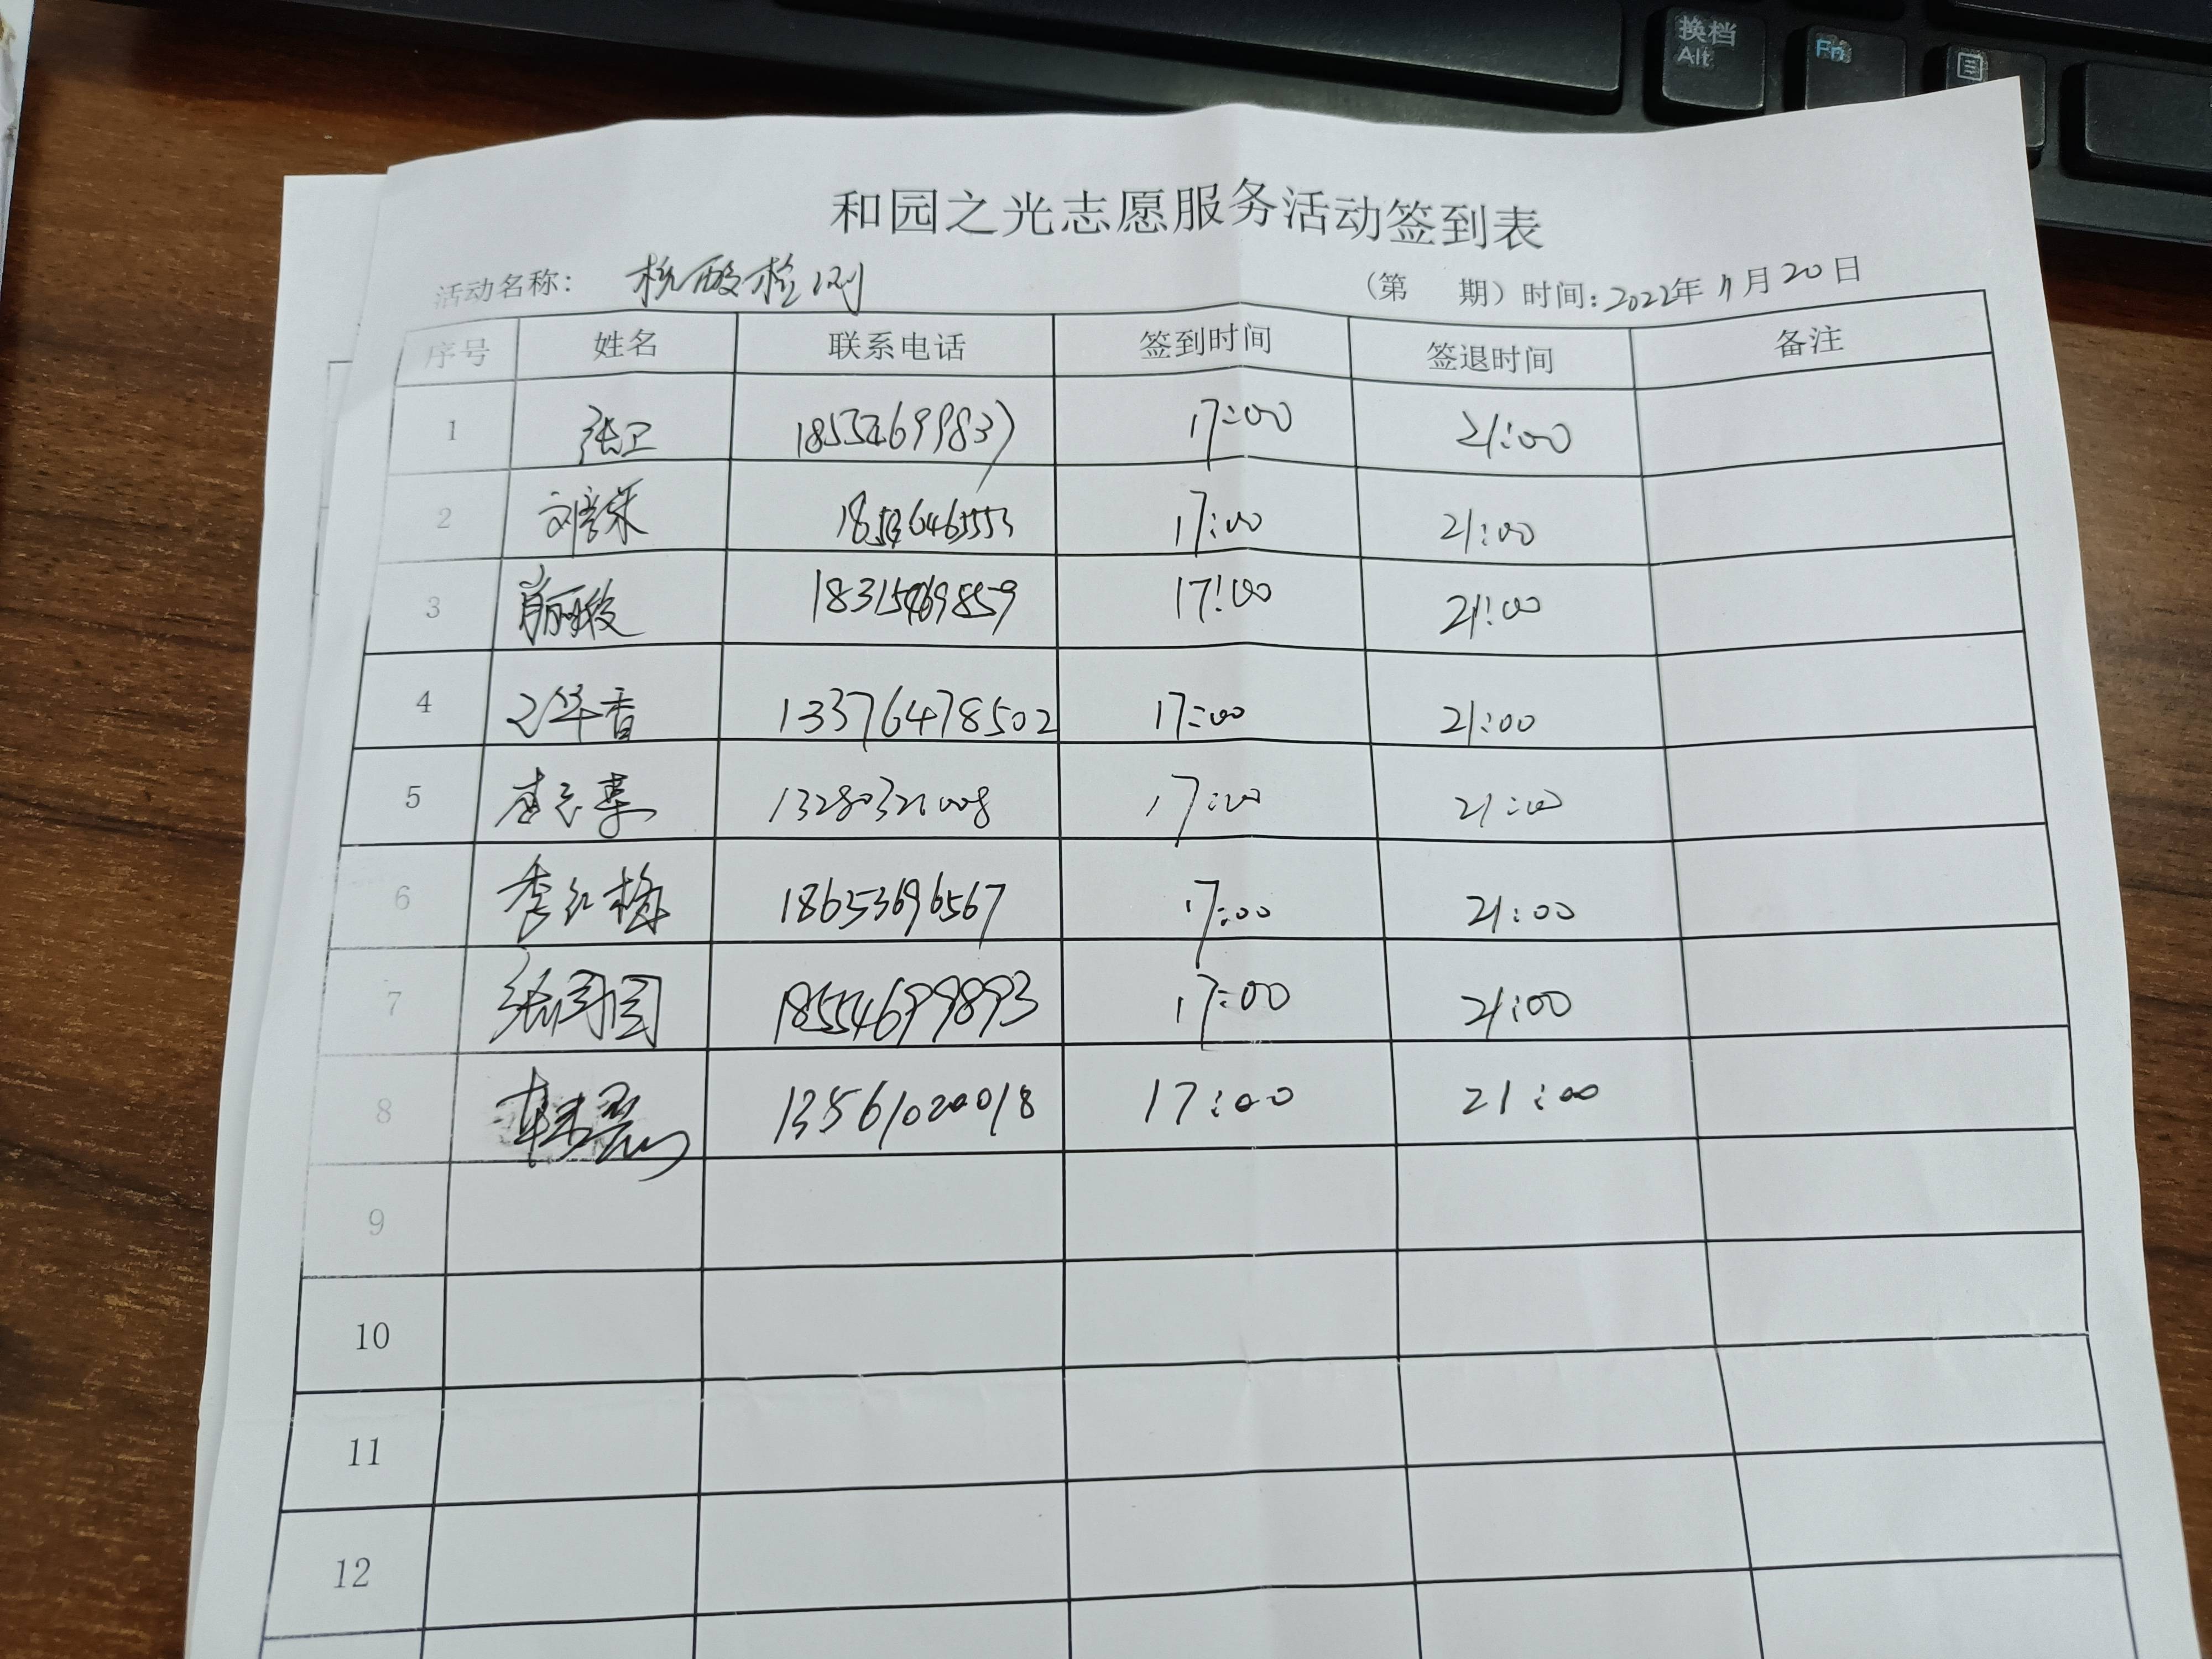 换档
Alt
Fn
和园之光志愿服务活动签到表
活动名称： 核酸检测 （第 期）时间：2022年 11月 20日
序号 姓名 联系电话 签到时间 签退时间 备注
1 张卫 17:00 21:00
2 17:00 21:00
3 18315469859 17:00 21:00
4 13376478502 17:00 21:00
5 17:00 21:00
6 李红梅 18653696567 17:00 21:00
7 18554699893 17:00 21:00
8 13561020018 17:00 21:00
9
10
11
12